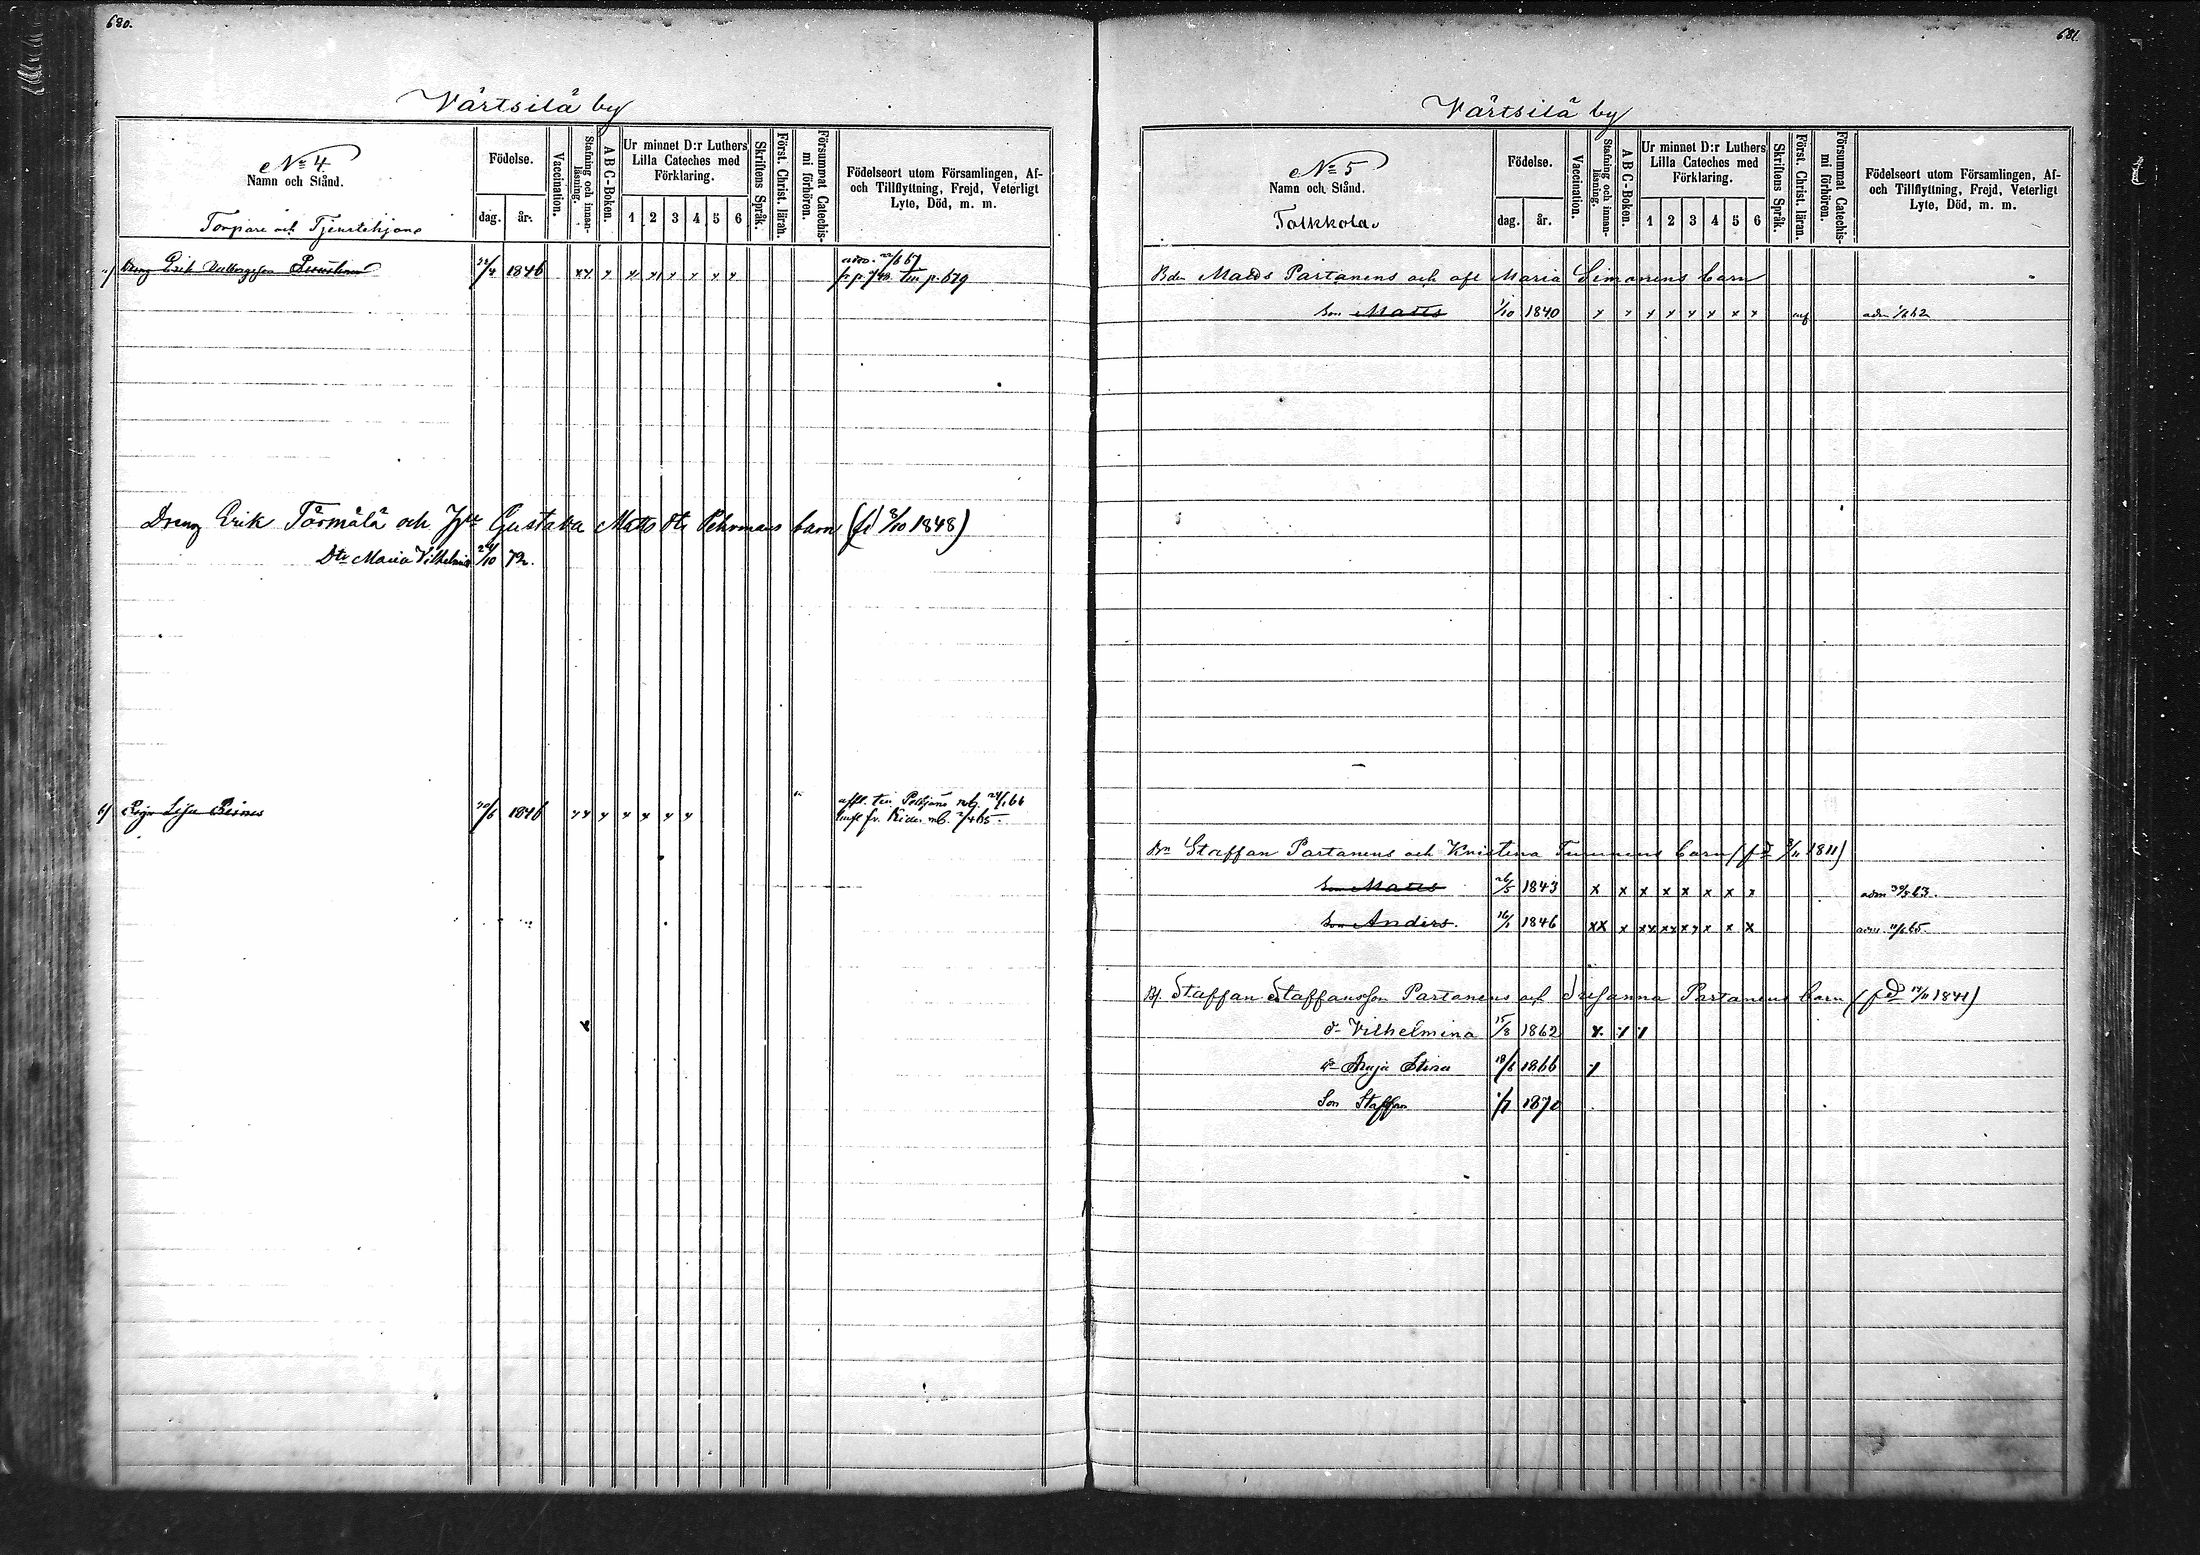 680.
Värtsilä by
No 4
Namn och Stånd.
Torpare och Tjenstehjon
Födelse.
dag.
år.
Vaccination.
Stafning och innanläsning.
A B C-Boken.
Ur minnet D:r Luthers
Lilla Cateches med
Förklaring.
1 2 3 4 5 6
Skriftens Språk.
Först. Christ. lärah.
Försummat Catechismi förhören.
Födelseort utom Församlingen, Af-
och Tillflyttning, Frejd, Veterligt
Lyte, Död, m. m.
Dreng Erik 1846 xx x x x x x x x
p. 679
Dreng Erik Törmälä och Gustava Mats dtr Pehrmans barn (fd 8/10 1848)
Dtr Maria Vilhelmina 24/10 72.
6) Piga Lisa 20/6 1846 xx x x x x x
24/1 66
681.
Värtsilä by
No 5
Namn och Stånd.
Tolkkola
Födelse.
dag.
år.
Vaccination.
Stafning och innanläsning.
A B C-Boken.
Ur minnet D:r Luthers
Lilla Cateches med
Förklaring.
1 2 3 4 5 6
Skriftens Språk.
Först. Christ. läran.
Försummat Catechismi förhören.
Födelseort utom Församlingen, Af-
och Tillflyttning, Frejd, Veterligt
Lyte, Död, m. m.
Bdn Matts Partanens och afl Maria Simonens barn
Son Matts 1/10 1840 x x x x x x x x adm 1/6 62
Staffan Partanens och Kristina barn (fd 3/11 1811)
Son Matts 26/5 1843 x x x x x x x x adm 63.
Son Anders. 16/1 1846 xx x xx xx xx x x x adm. 11/6 65.
Staffan Staffansson Partanens och Susanna Partanens barn (fd 14/11 1841)
d- Vilhelmina 15/8 1862 x x x
d- Maja Stina 18/6 1866 x
Son Staffan 1/7 1870